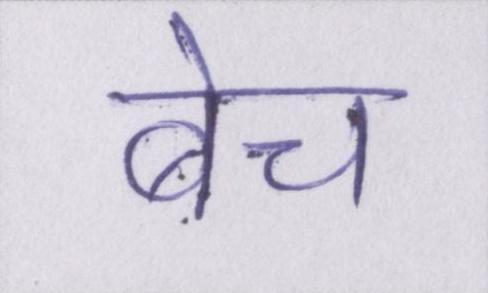 बेच